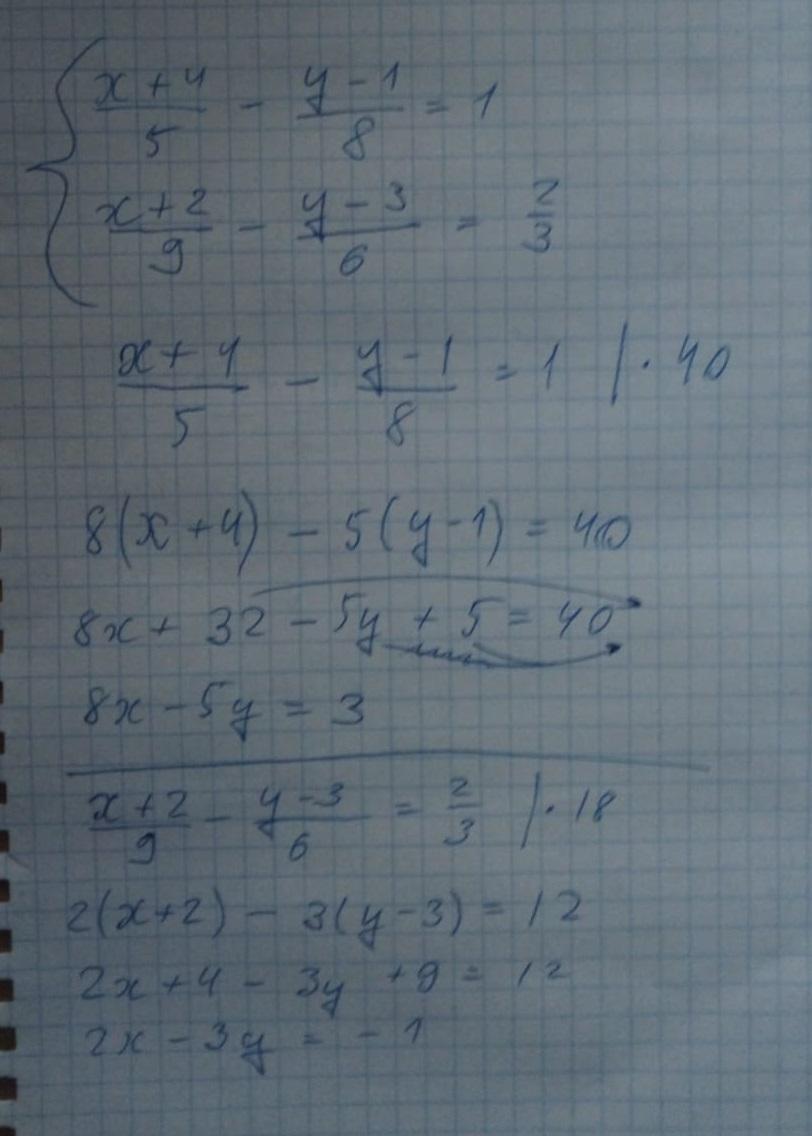 { (x+4)/5 - (y-1)/8 = 1
(x+2)/9 - (y-3)/6 = 2/3
(x+4)/5 - (y-1)/8 = 1 /·40
8(x+4) - 5(y-1) = 40
8x + 32 - 5y + 5 = 40
8x - 5y = 3
(x+2)/9 - (y-3)/6 = 2/3 /·18
2(x+2) - 3(y-3) = 12
2x + 4 - 3y + 9 = 12
2x - 3y = -1